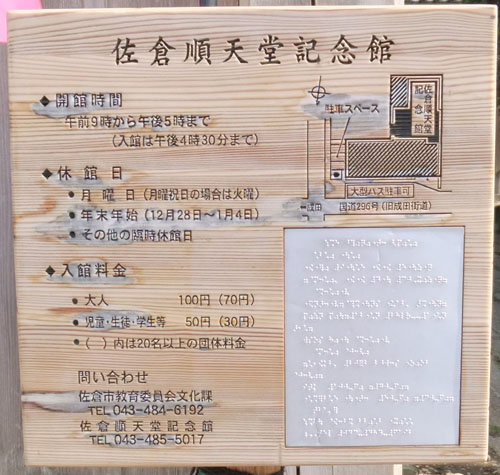 佐倉順天堂記念館
◆開館時間
午前9時から午後5時まで
(入館は午後4時30分まで)
◆休館日
●月曜日(月曜祝日の場合は火曜)
●年末年始(12月28日～1月4日)
●その他の臨時休館日
◆入館料金
●大人 100円(70円)
●児童・生徒・学生等 50円(30円)
●( )内は20名以上の団体料金
問い合わせ
佐倉市教育委員会文化課
TEL 043-484-6192
佐倉順天堂記念館
TEL 043-485-5017
駐車スペース
佐倉順天堂
記念館
大型バス駐車可
国道296号(旧成田街道)